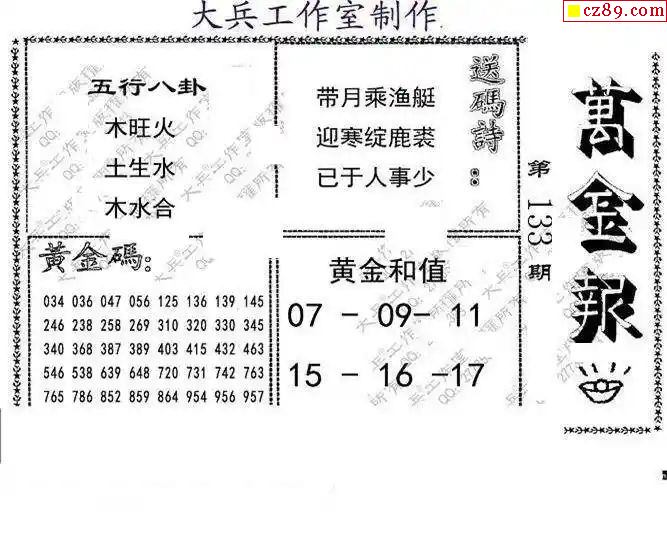 大兵工作室制作
cz89.com
五行八卦
木旺火
土生水
木水合
送碼詩：
带月乘渔艇
迎寒绽鹿裘
已于人事少
萬金报
第133期
黃金碼：
034 036 047 056 125 136 139 145
246 238 258 269 310 320 330 345
340 368 387 389 403 415 432 463
546 538 639 648 720 731 742 763
765 786 852 859 864 954 956 957
黄金和值
07 - 09- 11
15 - 16 -17